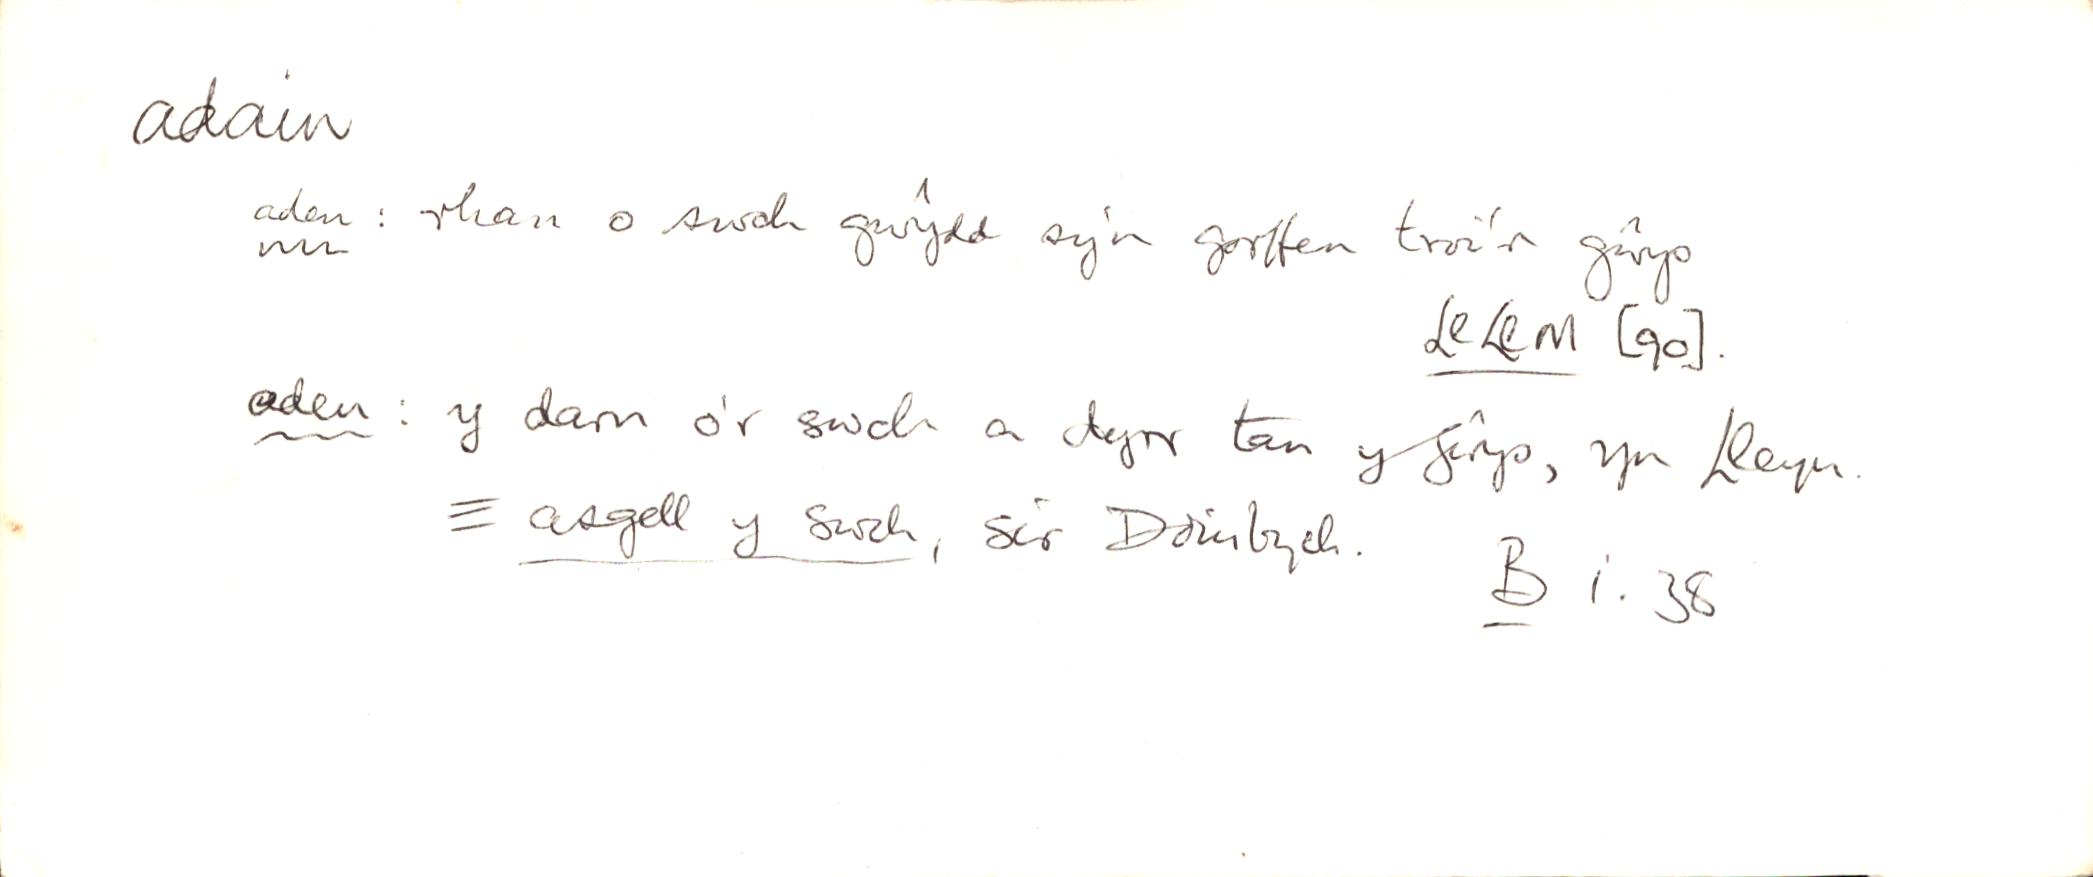 adain
aden : rhan o swch gwŷdd sy'n gorffen troi'r gŵys
LlLlM [90].
aden : y darn o'r swch a dyrr tan y gŵys, yn Lleyn.
≡ asgell y swch, sir Ddinbych.
B i. 38